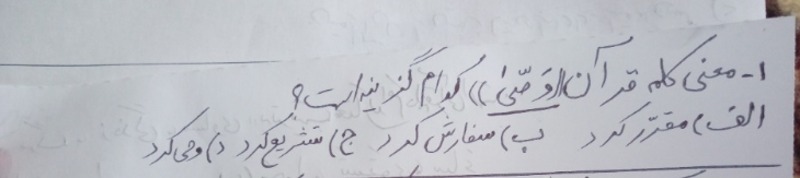 ۱- معنی کلمه قرآن ((وَصّیٰ)) کدام گزینه است؟
الف) مقدّر کرد ب) سفارش کرد ج) تشریع کرد د) وحی کرد